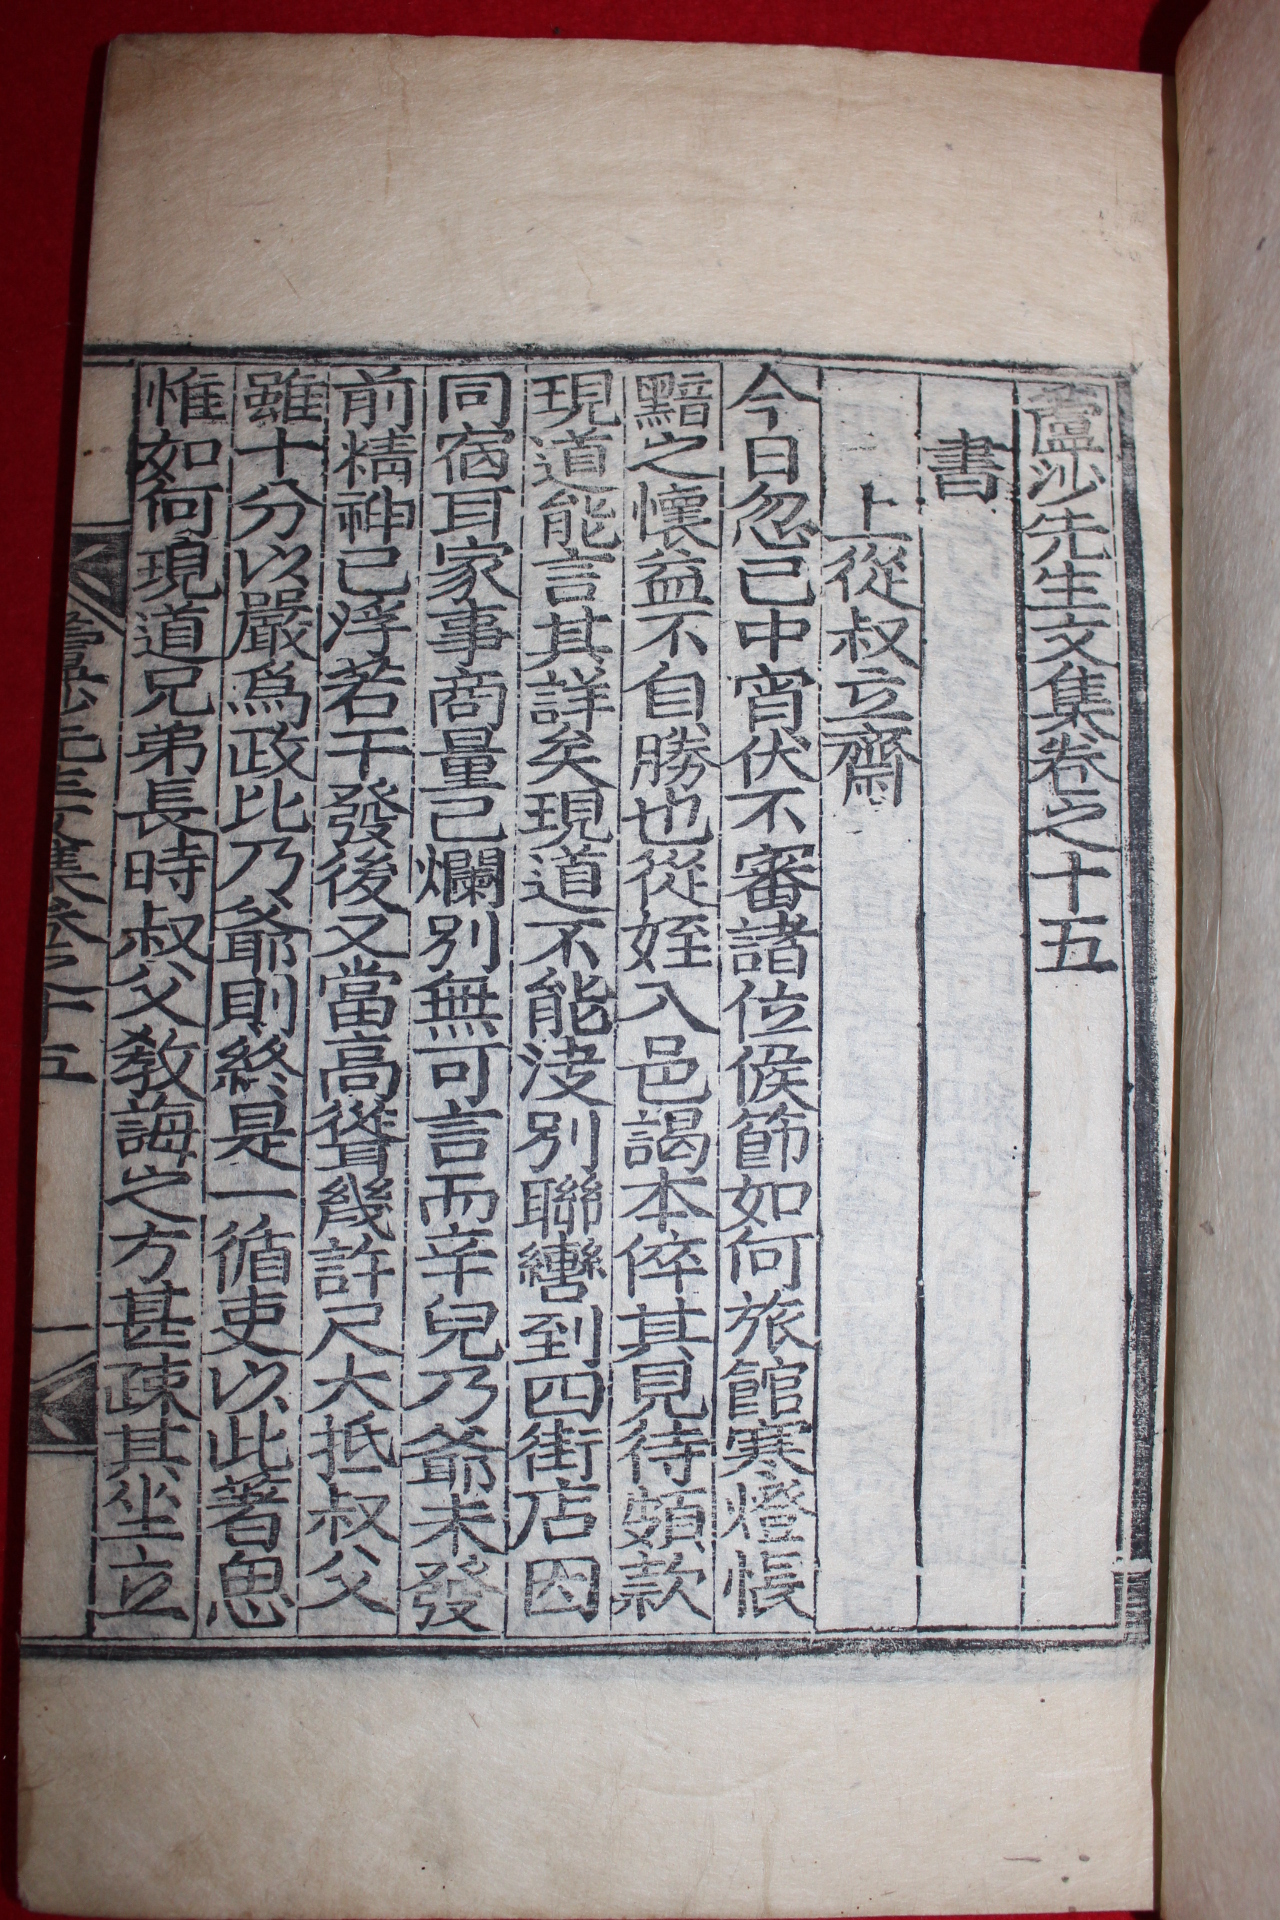 蘆沙先生文集卷之十五
書
上從叔立齋
今日忽已中宵伏不審諸位候節如何旅館寒燈悵
黯之懷益不自勝也從姪入邑謁本倅其見待頗款
現道能言其詳矣現道不能浚別聯轡到四街店因
同宿耳家事商量已爛別無可言而辛兒乃爺未發
前精神已浮若干發後又當高聳幾許尺大抵叔父
雖十分以嚴爲政比乃爺則終是一循吏以此著思
惟如何現道兄弟長時叔父敎誨之方甚疎其坐立
蘆沙先生文集卷之十五
一